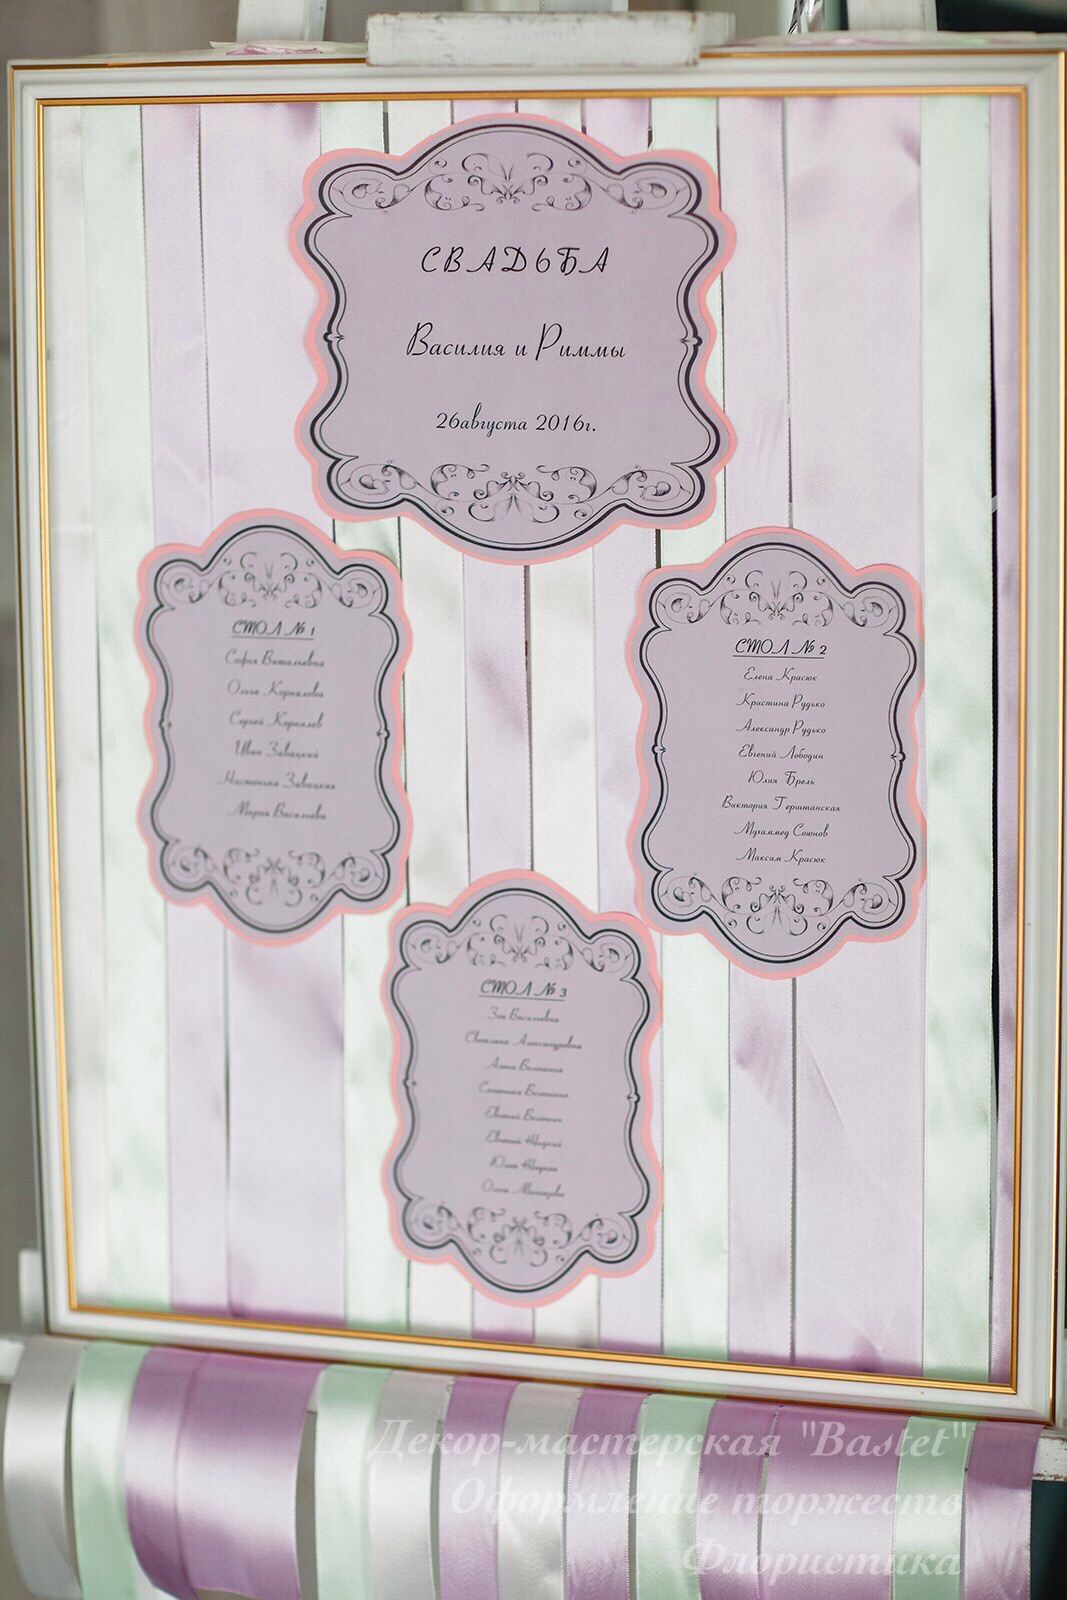 СВАДЬБА
Василия и Риммы
26августа 2016г.
СТОЛ № 1
София Витальевна
Ольга Корнилова
Сергей Корнилов
Иван Завацкий
Настенька Завацкая
Мария Васильева
СТОЛ № 2
Елена Красюк
Кристина Рудько
Александр Рудько
Евгений Лободин
Юлия Брель
Виктория Герштанская
Мухаммед Союнов
Максим Красюк
СТОЛ № 3
Зоя Васильевна
Светлана Александровна
Алена
Евгений
Евгений
Юлия
Декор-мастерская "Bastet"
Оформление торжеств
Флористика